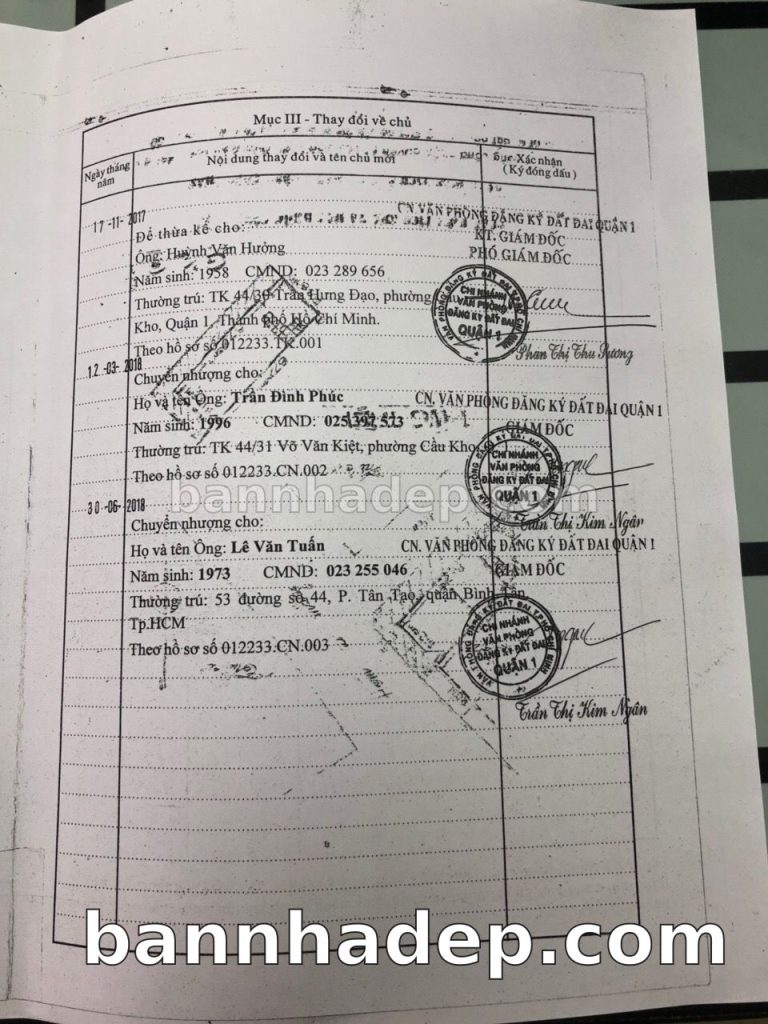 Mục III - Thay đổi về chủ
Ngày tháng năm
Nội dung thay đổi và tên chủ mới
Xác nhận
(Ký đóng dấu)
17-11-2017
CN. VĂN PHÒNG ĐĂNG KÝ ĐẤT ĐAI QUẬN 1
Để thừa kế cho:
KT. GIÁM ĐỐC
Ông: Huỳnh Văn Hưởng
PHÓ GIÁM ĐỐC
Năm sinh: 1958 CMND: 023 289 656
Thường trú: TK 44/30 Trần Hưng Đạo, phường
Kho, Quận 1, Thành phố Hồ Chí Minh.
CHI NHÁNH
VĂN PHÒNG
ĐĂNG KÝ ĐẤT ĐAI
QUẬN 1
Theo hồ sơ số 012233.TK.001
Phan Thị Thu Sương
12-03-2018
Chuyển nhượng cho:
Họ và tên Ông: Trần Đình Phúc
CN. VĂN PHÒNG ĐĂNG KÝ ĐẤT ĐAI QUẬN 1
Năm sinh: 1996 CMND: 025 397 523
GIÁM ĐỐC
Thường trú: TK 44/31 Võ Văn Kiệt, phường Cầu Kho
Theo hồ sơ số 012233.CN.002
CHI NHÁNH
VĂN PHÒNG
ĐĂNG KÝ ĐẤT ĐAI
QUẬN 1
bannhadep.com
Trần Thị Kim Ngân
30-05-2018
Chuyển nhượng cho:
Họ và tên Ông: Lê Văn Tuấn
CN. VĂN PHÒNG ĐĂNG KÝ ĐẤT ĐAI QUẬN 1
Năm sinh: 1973 CMND: 023 255 046
GIÁM ĐỐC
Thường trú: 53 đường số 44, P. Tân Tạo, quận Bình Tân,
Tp.HCM
Theo hồ sơ số 012233.CN.003
CHI NHÁNH
VĂN PHÒNG
ĐĂNG KÝ ĐẤT ĐAI
QUẬN 1
Trần Thị Kim Ngân
bannhadep.com